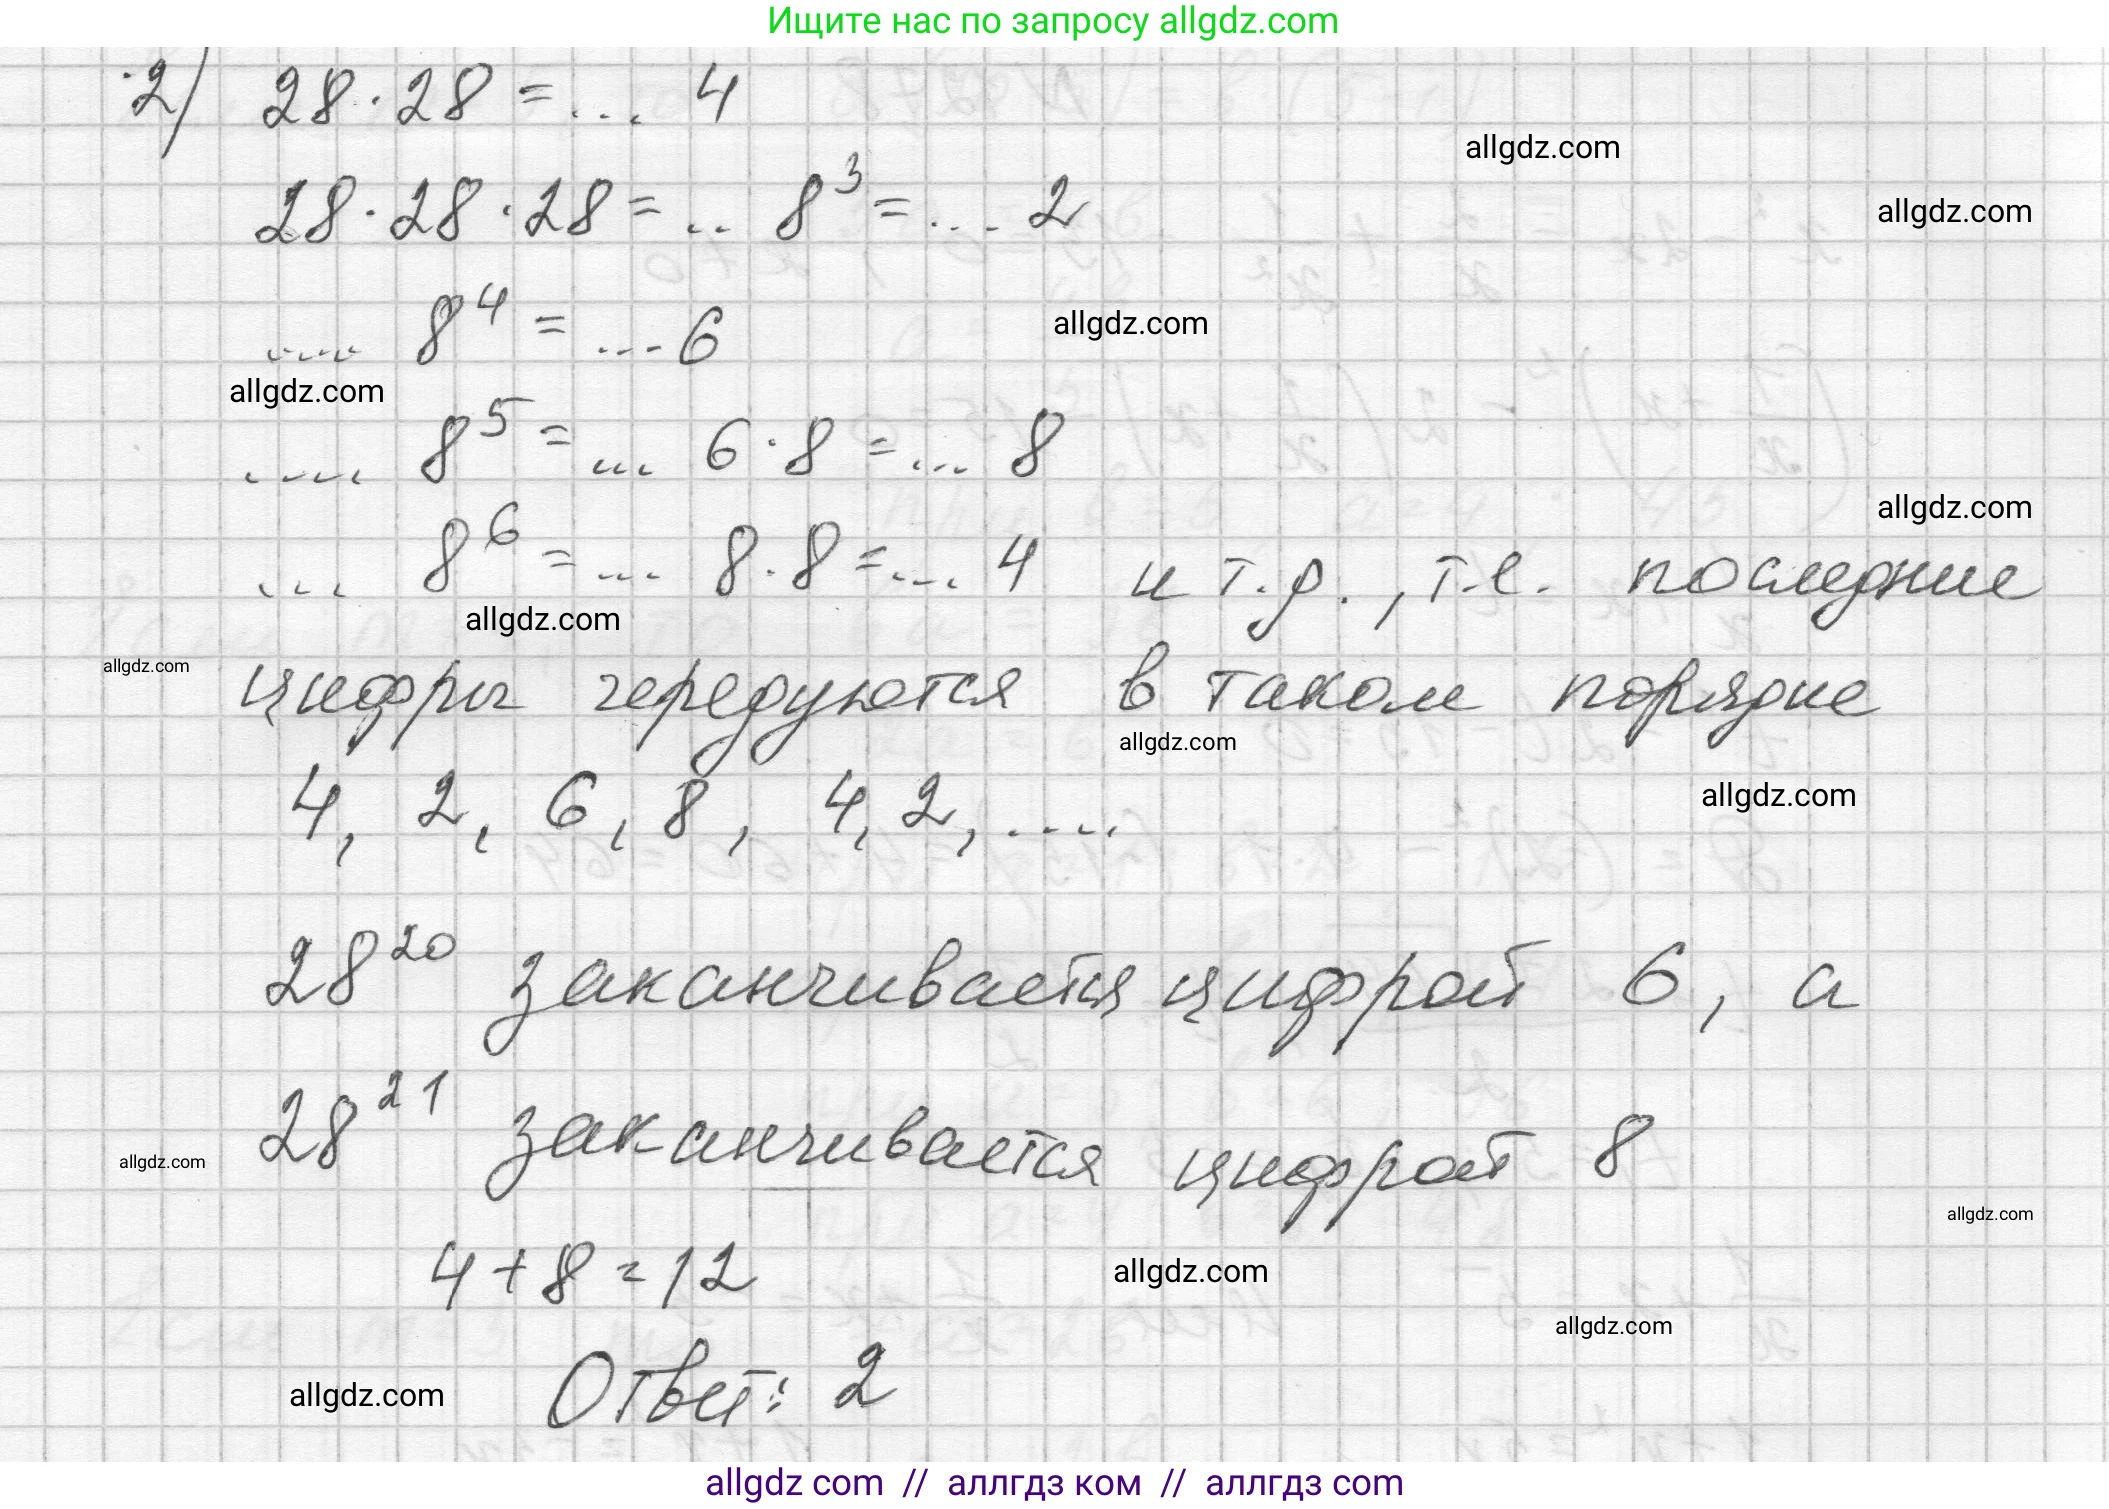 Ищите нас по запросу allgdz.com
2) 28 · 28 = ... 4
allgdz.com
28 · 28 · 28 = .. 8³ = ... 2
allgdz.com
.... 8⁴ = ... 6
allgdz.com
allgdz.com
.... 8⁵ = ... 6 · 8 = ... 8
allgdz.com
... 8⁶ = ... 8 · 8 = ... 4 и т.д., т.е. последние
allgdz.com
allgdz.com
цифры чередуются в таком порядке
allgdz.com
allgdz.com
4, 2, 6, 8, 4, 2, ....
28²⁰ заканчивается цифрой 6, а
28²¹ заканчивается цифрой 8
allgdz.com
allgdz.com
4 + 8 = 12
allgdz.com
allgdz.com
Ответ: 2
allgdz.com
allgdz com // аллгдз ком // аллгдз com